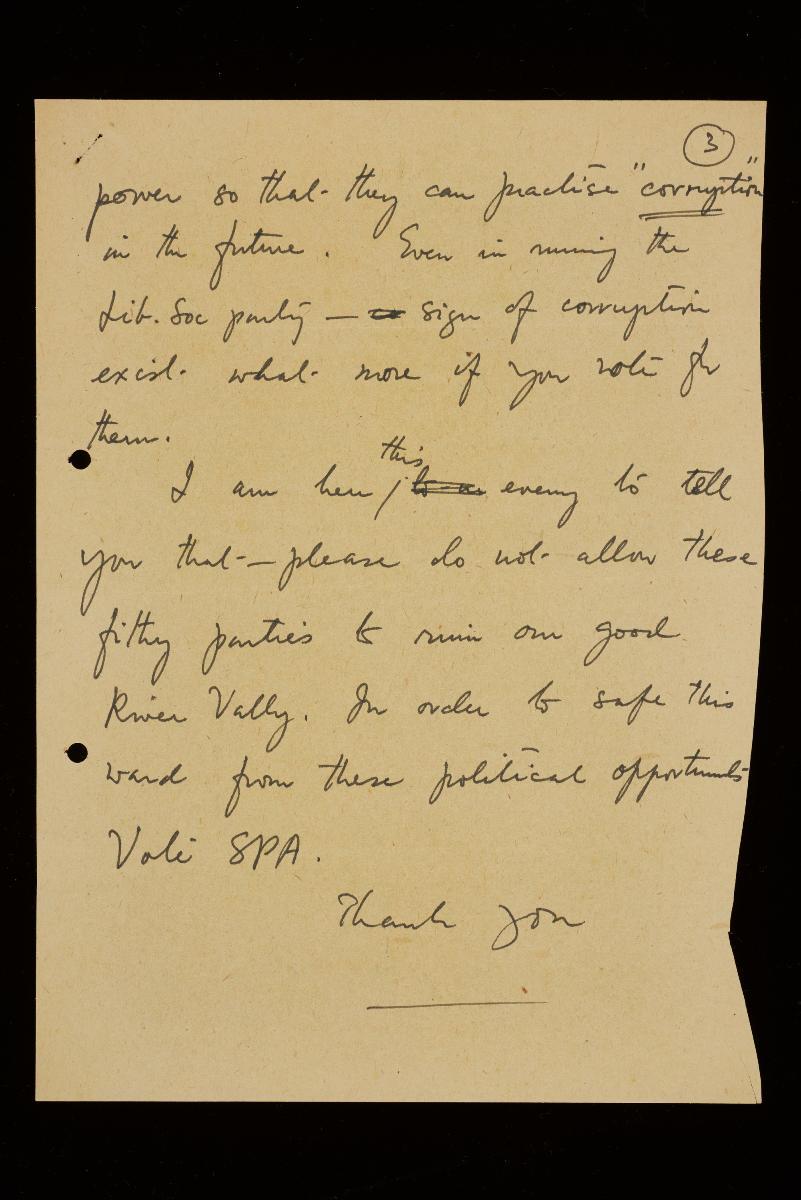 3
power so that they can practise "corruption"
in the future. Even in running the
Lib. Soc party — sign of corruption
exist what more if you vote for
them.
this
I am here / to evening to tell
you that — please do not allow these
filthy parties to ruin our good
River Vally. In order to safe this
ward from these political opportunists
Vote SPA.
Thank you